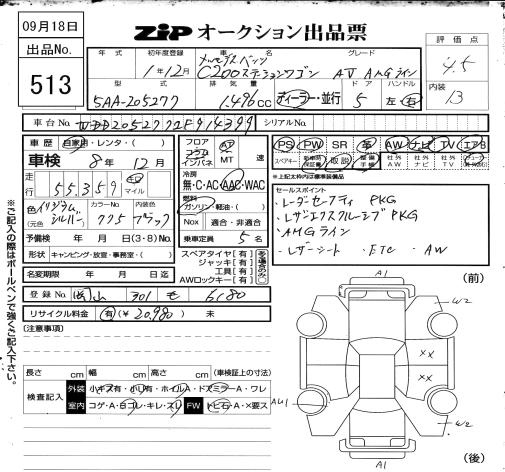 09月18日
出品No.
513
ZiP オークション出品票
評価点
4.5
内装
13
年式 初年度登録 車名 グレード
1年12月 メルセデスベンツ C200ステションワゴン AV AMGライン
型式 排気量 ドア ハンドル
5AA-205277 1.496cc ディーラー・並行 5 左・右
車台No. WDD2052772F914399 シリアルNo.
車歴 自家用・レンタ・( )
車検 8年12月
走行 55,359 km マイル
色 イリジウムシルバー (元色) カラーNo 775 内装色 ブラック
予備検 年 月 日(3・8)No.
形状 キャンピング・放宣・事務室・( )
名変期限 年 月 日迄
登録No. 岡山 301 も 6180
リサイクル料金 有(¥20,980) 未
フロア コラム インパネ AT MT 速
冷房 無・C・AC・AAC・WAC
燃料 ガソリン・軽油・( )
Nox 適合・非適合
乗車定員 5名
スペアタイヤ[有]
ジャッキ[有]
工具[有]
AWロックキー[有]
を場合のみ〇
PS PW SR 革 AW ナビ TV エアB
スペアキー 新車時保証書 取説 整備手帳 社外AW 社外ナビ 社外TV
※上記太枠内は標準装備品
セールスポイント
・レーダーセーフティ PKG
・レザーエクスクルーシブ PKG
・AMGライン
・レザーシート ・ETC ・AW
(注意事項)
長さ cm 幅 cm 高さ cm (車検証上の寸法)
検査記入 外装 小キズ有・小凹有・ホイルA・ドアミラーA・ワレ
室内 コゲ・A・白コレ・キレ・スレ FW トビ石・A・×要ス
※ご記入の際はボールペンで強くご記入下さい。
(前)
A1
W2
××
××
AW1
W2
A1
(後)